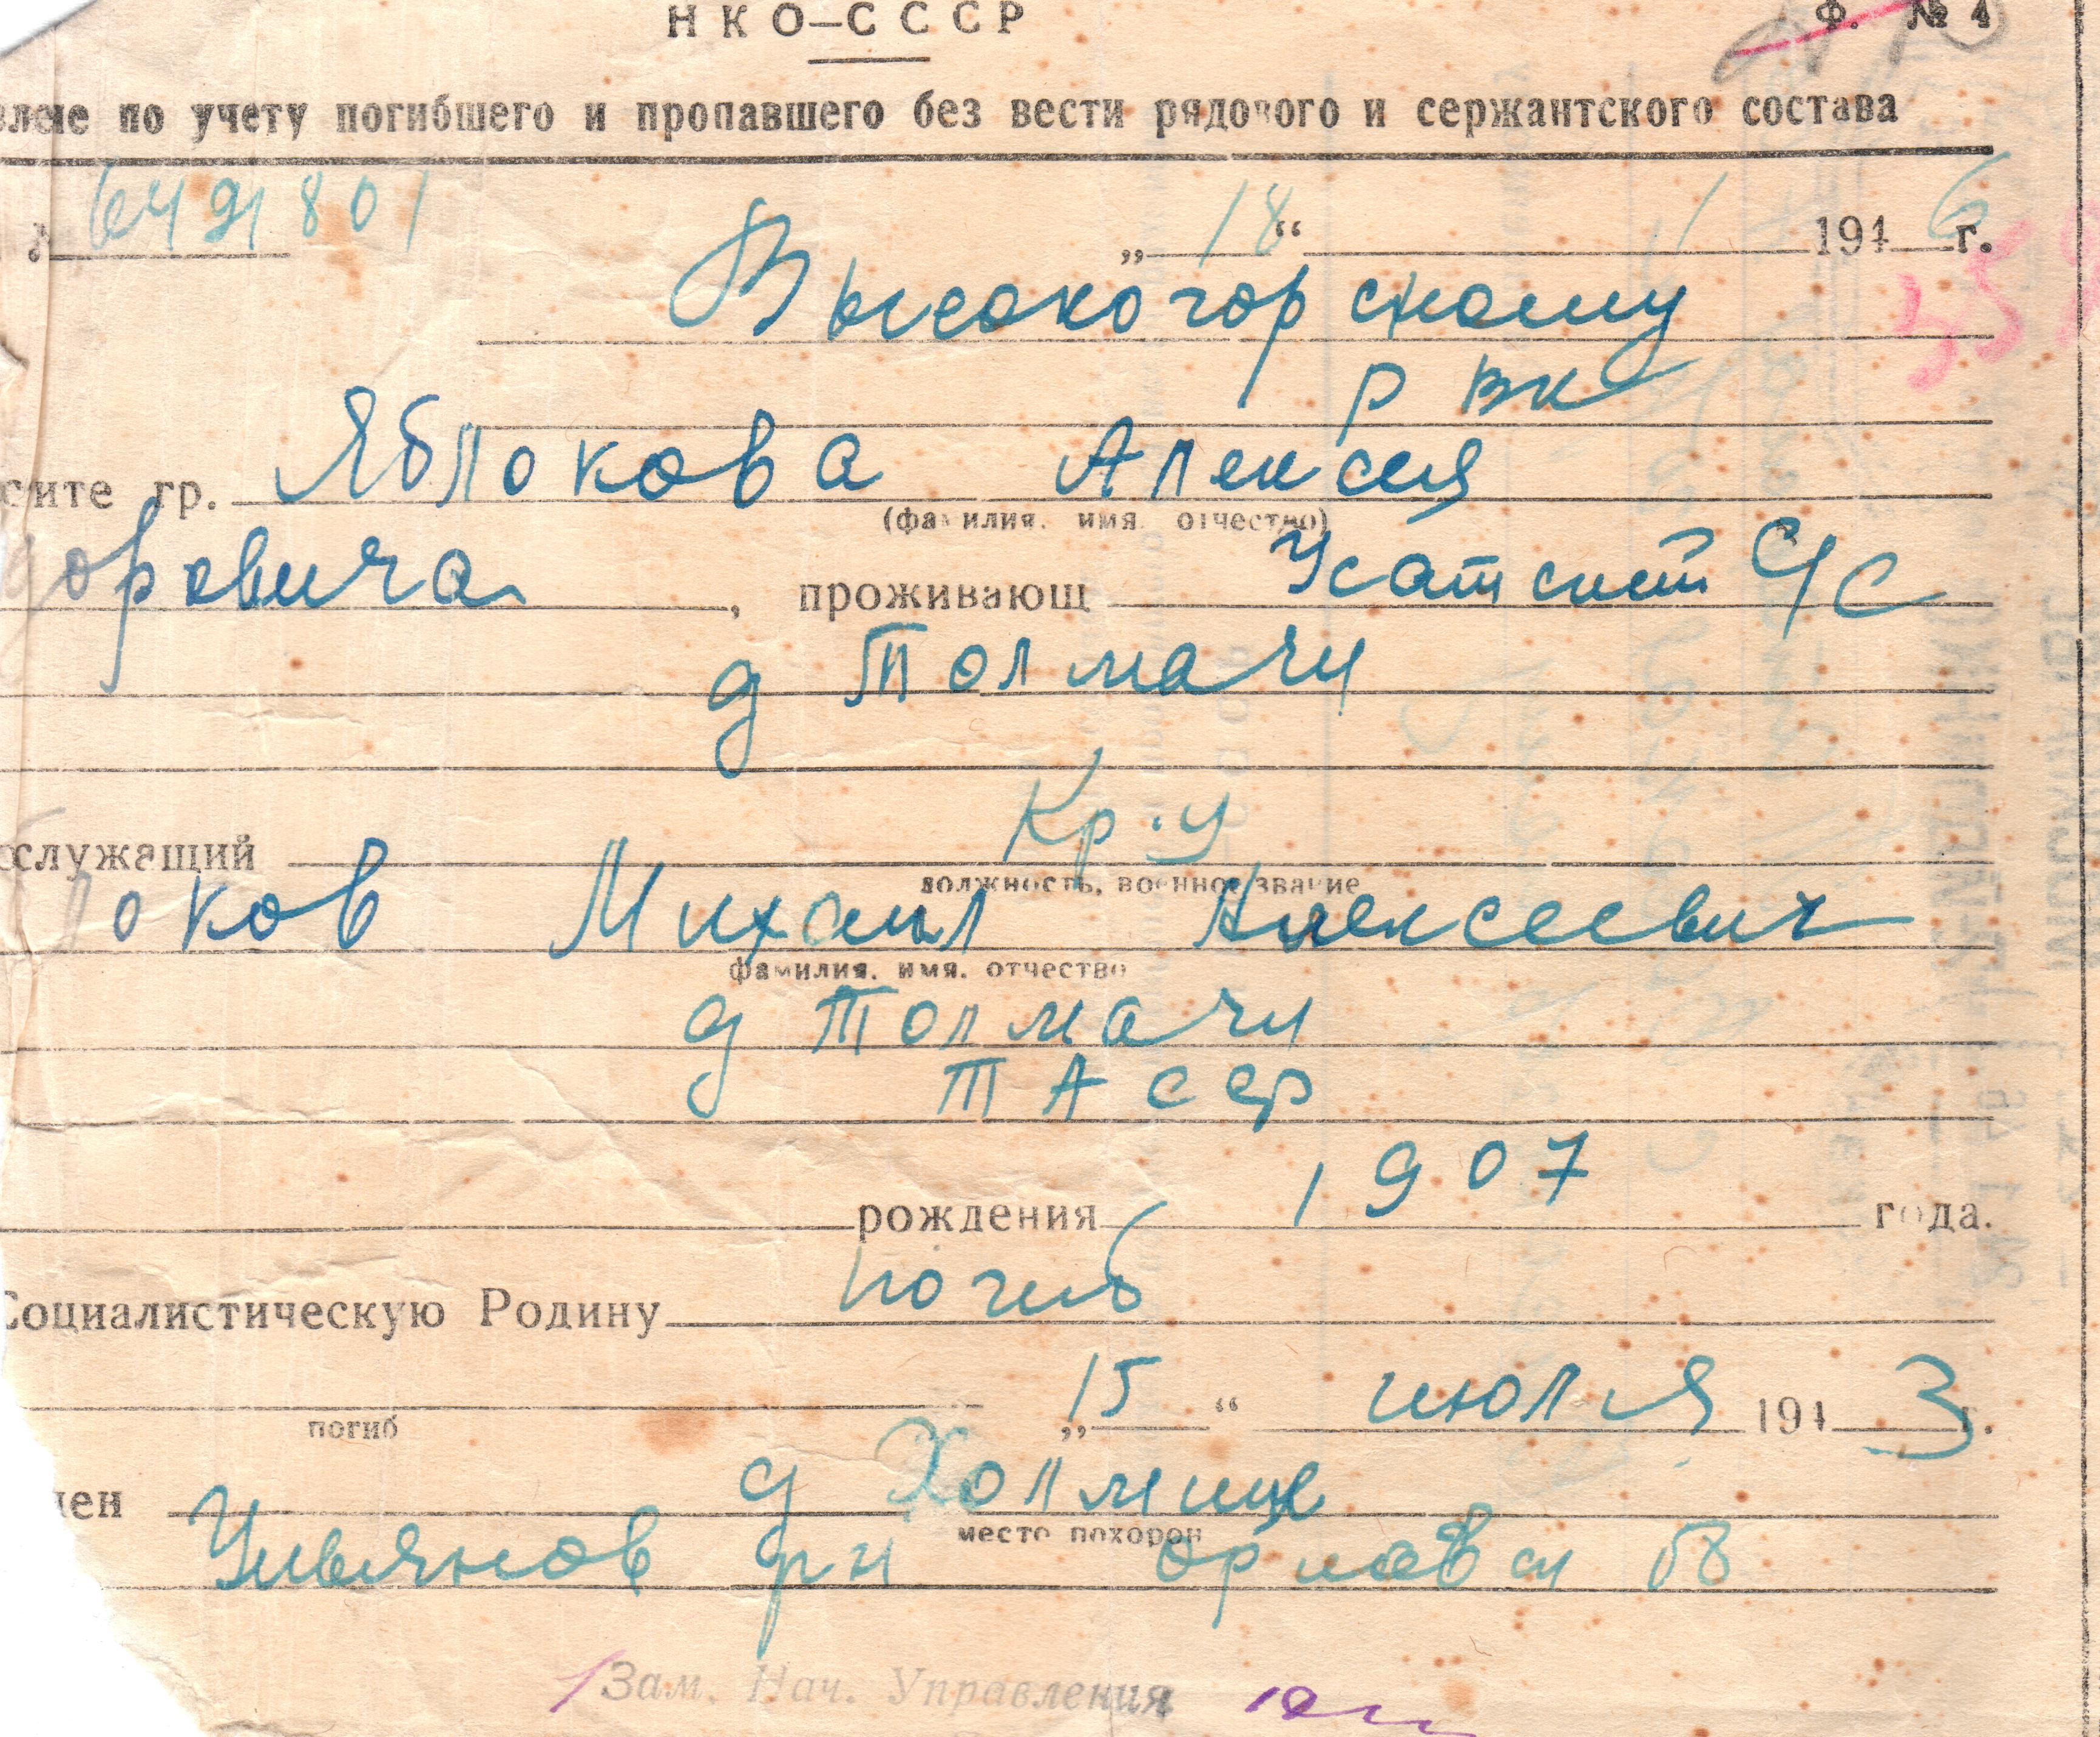 НКО—СССР
Ф. № 4
вление по учету погибшего и пропавшего без вести рядового и сержантского состава
6491801 „18“ 1 1946 г.
Высокогорскому
РВК
сите гр. Яблокова Алексея
(фамилия, имя, отчество)
доровича, проживающ Усатский С/С
д Толмачи
ослужащий Кр-ц
должность, военное звание
локов Михаил Алексеевич
фамилия, имя, отчество
д Толмачи
ТАССР
рождения 1907 года.
Социалистическую Родину погиб
„15“ июля 1943 г.
погиб
нен д Холмище
место похорон
Ульянов рн Орловск
Зам. Нач. Управления